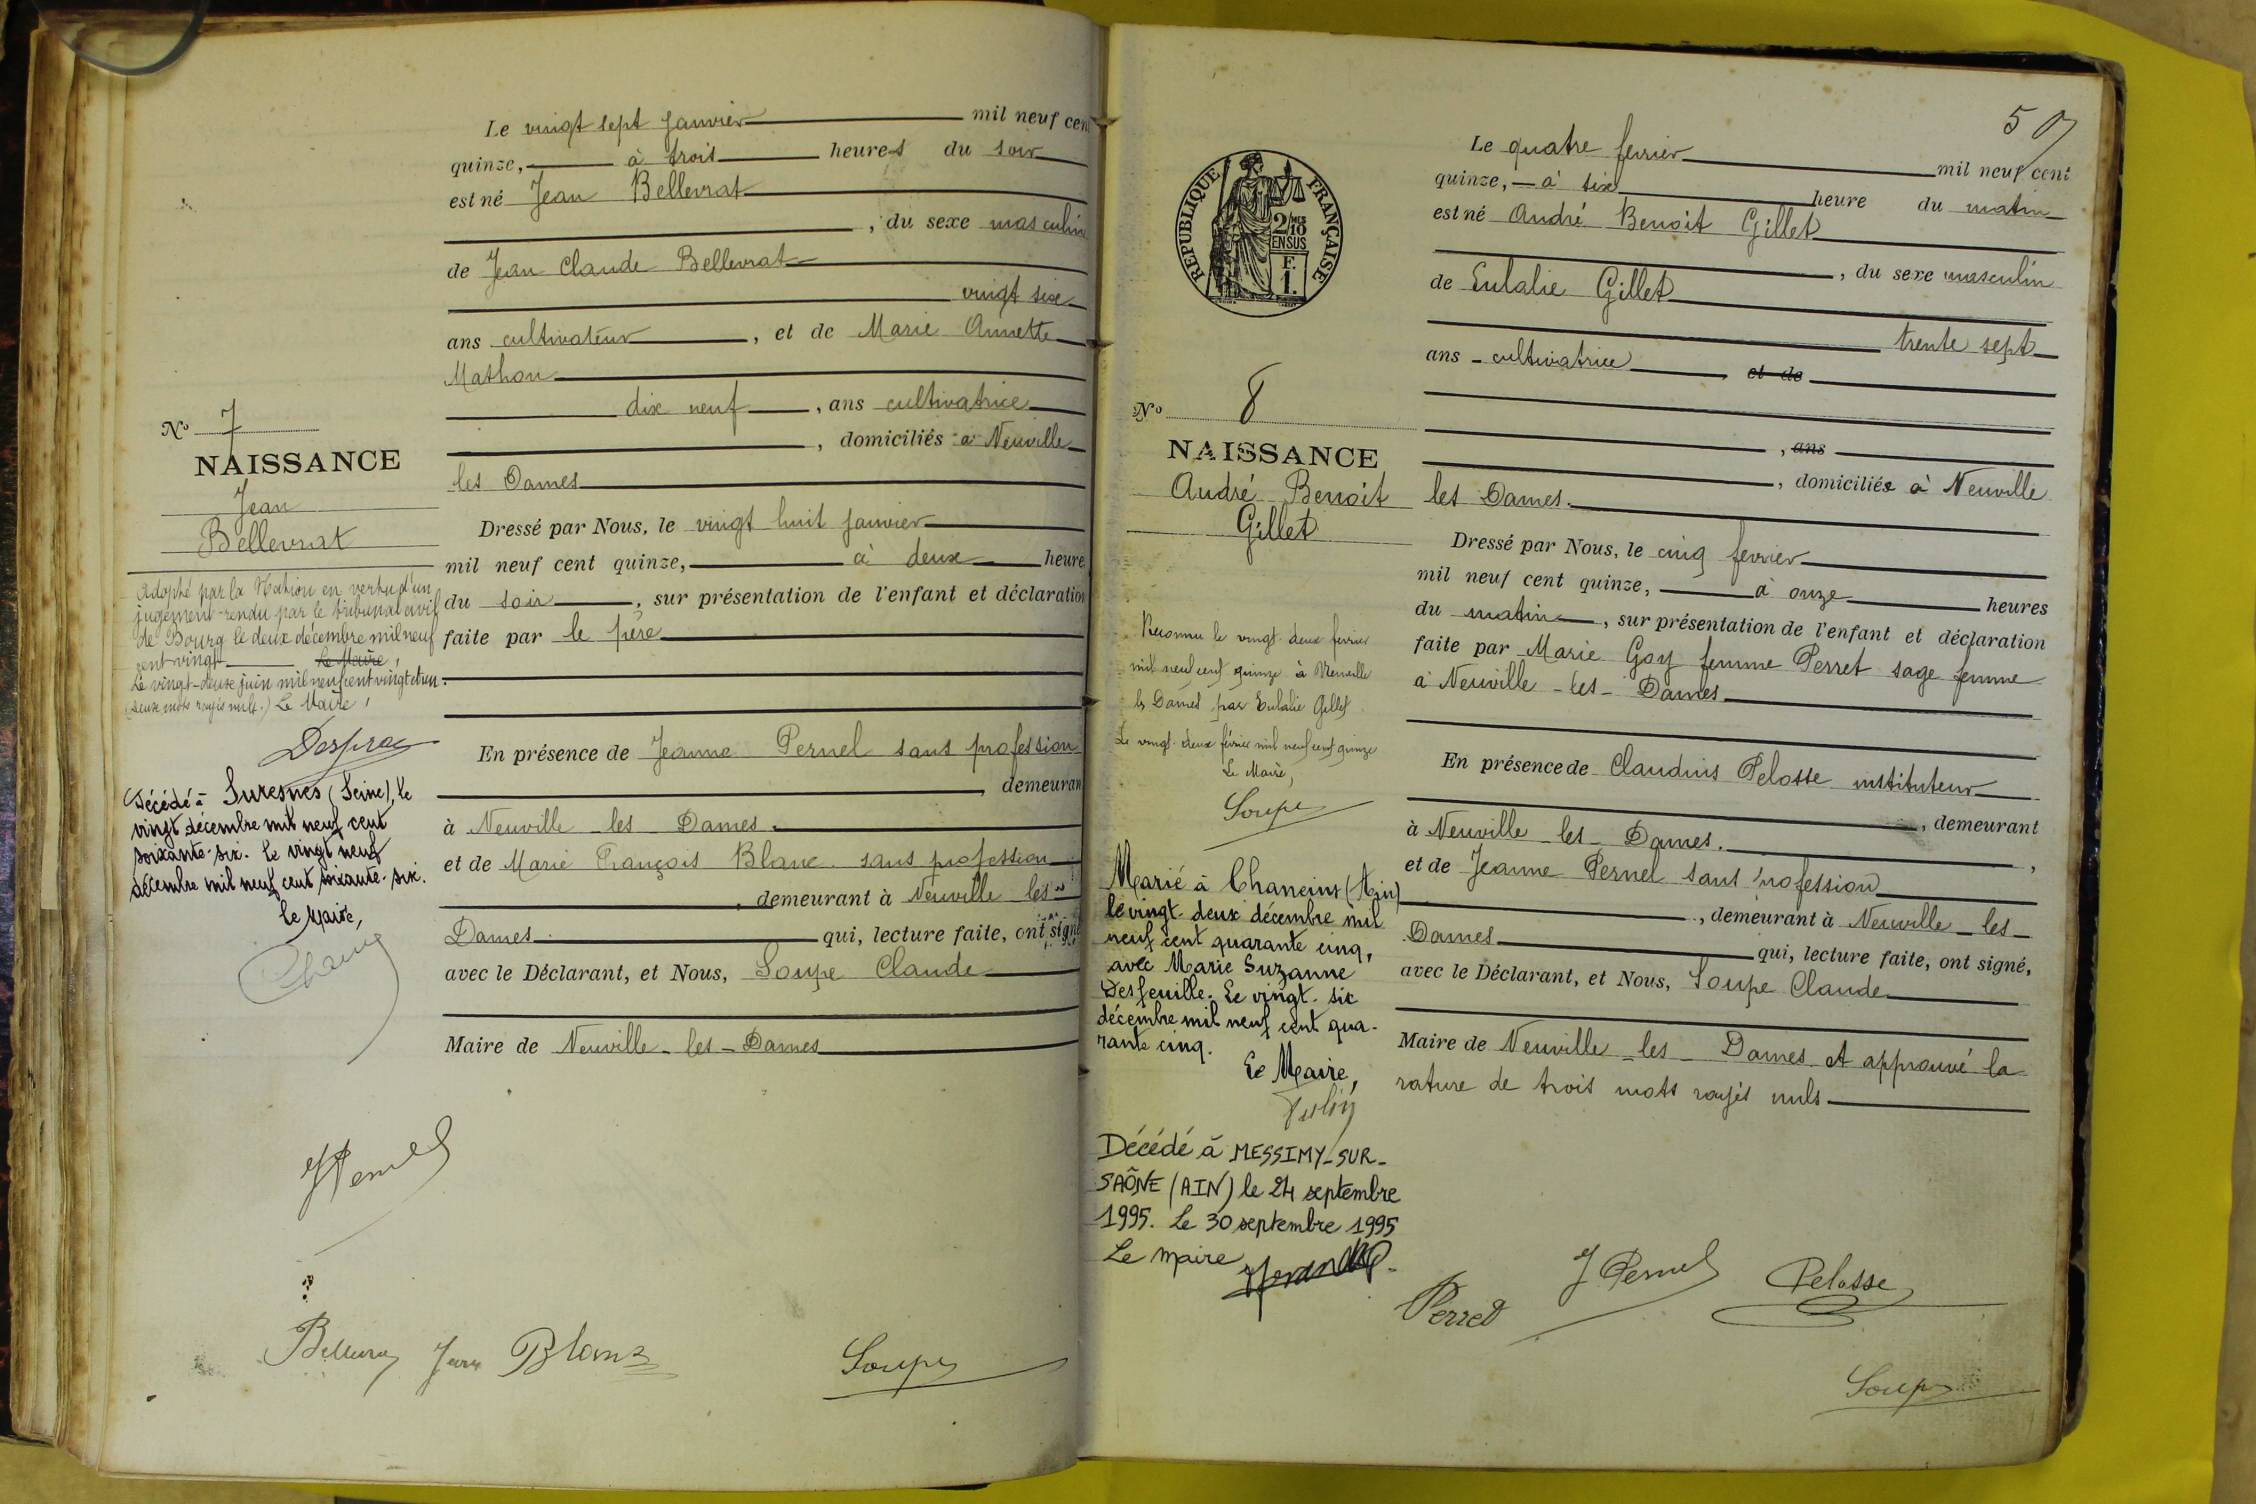 Le vingt sept janvier mil neuf cent
quinze, à trois heures du soir
est né Jean Bellevrat
, du sexe masculin
de Jean Claude Bellevrat
vingt six
ans cultivateur, et de Marie Annette
Mathon
dix neuf, ans cultivatrice
, domiciliés à Neuville
les Dames
Dressé par Nous, le vingt huit janvier
mil neuf cent quinze, à deux heure
du soir, sur présentation de l'enfant et déclaration
faite par le père
En présence de Jeanne Pernel sans profession
demeuran
à Neuville les Dames.
et de Marie François Blanc sans profession
, demeurant à Neuville les
Dames qui, lecture faite, ont signé
avec le Déclarant, et Nous, Soupe Claude
Maire de Neuville-les-Dames
No 7
NAISSANCE
Jean
Bellevrat
Adopté par la Nation en vertu d'un
jugement rendu par le tribunal civil
de Bourg le deux décembre mil neuf
cent vingt Le Maire,
Le vingt-deux juin mil neuf cent vingt et un.
(deux mots rayés nuls.) Le Maire,
Décédé à Suresnes (Seine), le
vingt décembre mil neuf cent
soixante-six. Le vingt neuf
décembre mil neuf cent soixante-six.
Le Maire,
J Pernel
Bellevrat Jean Blanc Soupe
50
Le quatre fevrier mil neuf cent
quinze, à six heure du matin
est né André Benoit Gillet
, du sexe masculin
de Eulalie Gillet
trente sept
ans cultivatrice, et de
, ans
, domiciliée à Neuville
les Dames.
Dressé par Nous, le cinq fevrier
mil neuf cent quinze, à onze heures
du matin, sur présentation de l'enfant et déclaration
faite par Marie Goy femme Perret sage femme
à Neuville-les-Dames
En présence de Claudius Pelosse instituteur
, demeurant
à Neuville les Dames.,
et de Jeanne Pernel sans profession
, demeurant à Neuville-les-
Dames qui, lecture faite, ont signé,
avec le Déclarant, et Nous, Soupe Claude
Maire de Neuville-les-Dames et approuvé la
rature de trois mots rayés nuls
RÉPUBLIQUE FRANÇAISE
2/10 MES
EN SUS
F.
1.
No 8
NAISSANCE
André Benoit
Gillet
Reconnu le vingt-deux fevrier
mil neuf cent quinze à Neuville
les Dames par Eulalie Gillet
Le vingt-deux février mil neuf cent quinze
Le Maire,
Soupe
Marié à Chaneins (Ain)
le vingt-deux décembre mil
neuf cent quarante cinq,
avec Marie Suzanne
Desfeuille. Le vingt-six
décembre mil neuf cent qua-
rante cinq.
Le Maire,
Décédé à MESSIMY-SUR-
SAÔNE (AIN) le 24 septembre
1995. Le 30 septembre 1995
Le maire
Perret J Pernel Pelosse
Soupe